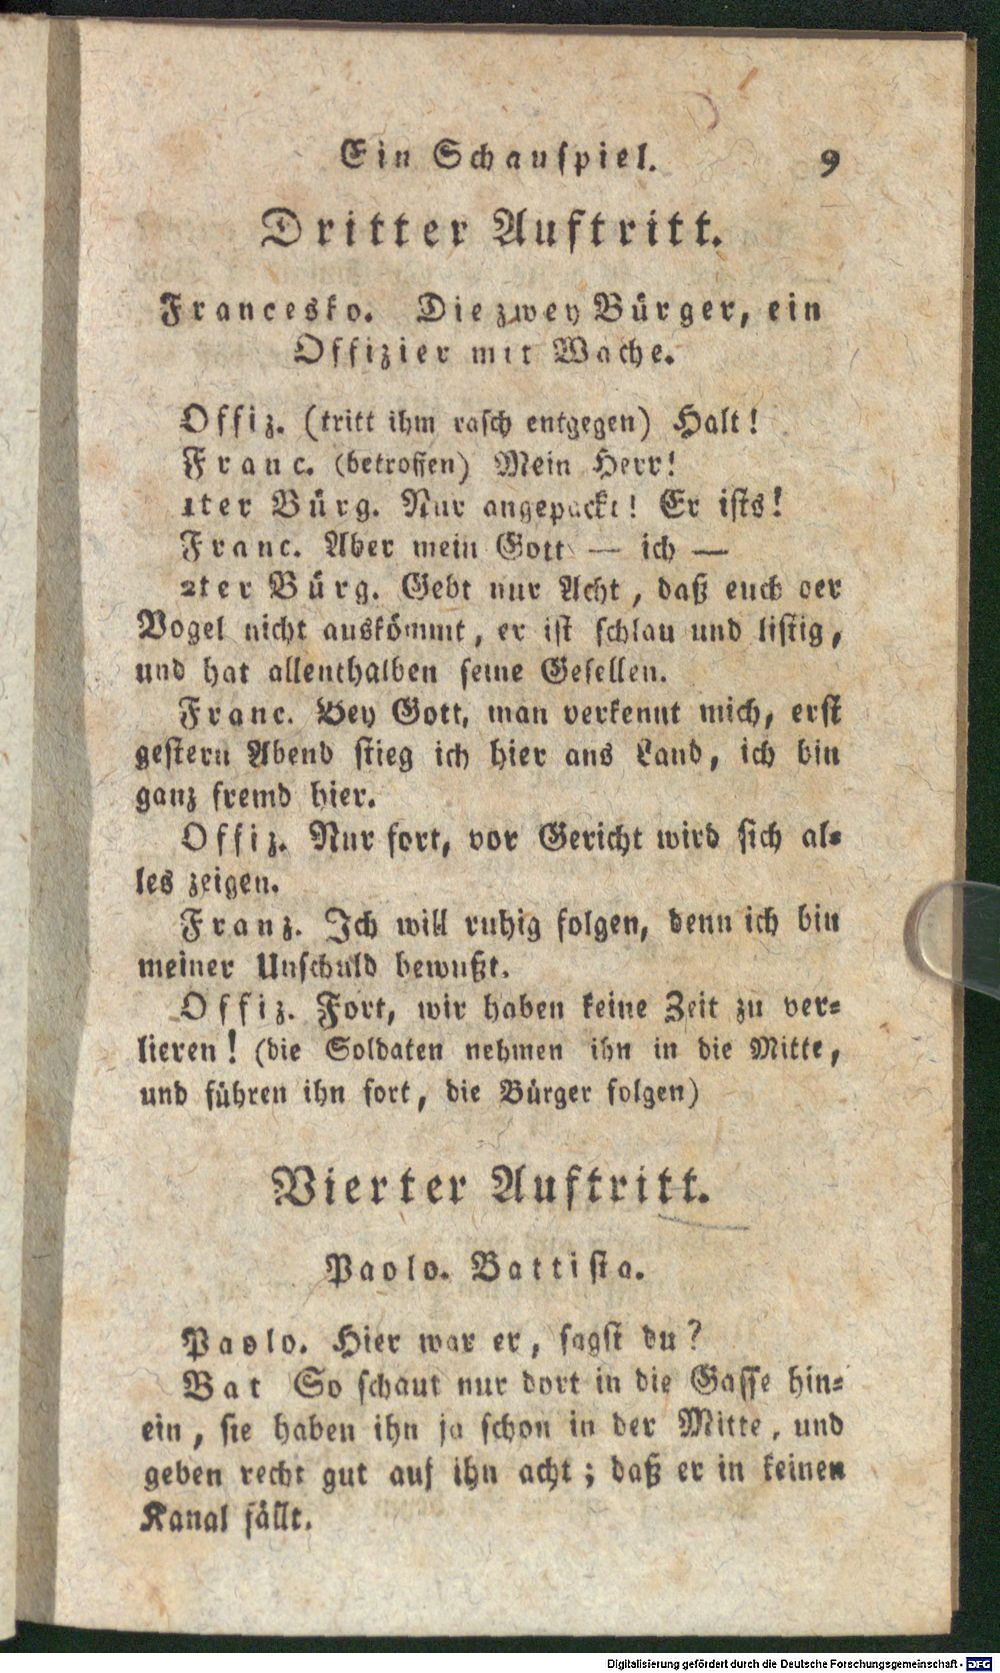 Ein Schauspiel. 9
Dritter Auftritt.
Francesko. Die zwey Bürger, ein
Offizier mit Wache.
Offiz. (tritt ihm rasch entgegen) Halt!
Franc. (betroffen) Mein Herr!
1ter Bürg. Nur angepackt! Er ists!
Franc. Aber mein Gott — ich —
2ter Bürg. Gebt nur Acht, daß euch der
Vogel nicht auskömmt, er ist schlau und listig,
und hat allenthalben seine Gesellen.
Franc. Bey Gott, man verkennt mich, erst
gestern Abend stieg ich hier ans Land, ich bin
ganz fremd hier.
Offiz. Nur fort, vor Gericht wird sich al-
les zeigen.
Franz. Ich will ruhig folgen, denn ich bin
meiner Unschuld bewußt.
Offiz. Fort, wir haben keine Zeit zu ver-
lieren! (die Soldaten nehmen ihn in die Mitte,
und führen ihn fort, die Bürger folgen)
Vierter Auftritt.
Paolo. Battista.
Paolo. Hier war er, sagst du?
Bat So schaut nur dort in die Gasse hin-
ein, sie haben ihn ja schon in der Mitte, und
geben recht gut auf ihn acht; daß er in keinen
Kanal fällt.
Digitalisierung gefördert durch die Deutsche Forschungsgemeinschaft - DFG